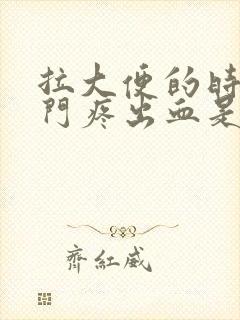 拉大便的時
門疼出血是
齊紅威